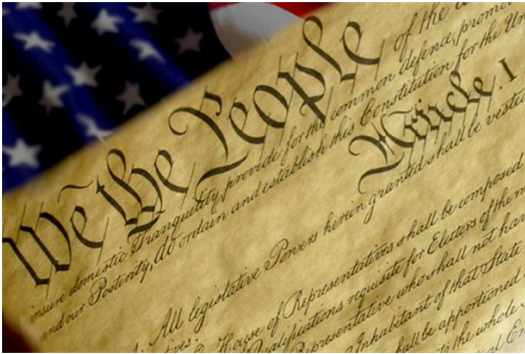 We the People of the
insure domestic Tranquility, provide for the common defence, promo
and our Posterity, do ordain and establish this Constitution for the Un
Article. I
All legislative Powers herein granted shall be vested
House of Representatives shall be composed
Qualifications requisite for Electors of the m
Representative who shall not ha
Inhabitant of that State
shall be apportioned
to the whole